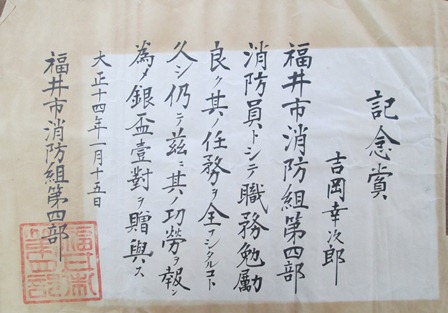 記念賞
吉岡幸次郎
福井市消防組第四部
消防員トシテ職務勉励
良ク其ノ任務ヲ全フシタルコト
久シ仍テ茲ニ其ノ功勞ヲ報ン
為メ銀盃壹對ヲ贈與ス
大正十四年一月十五日
福井市消防組第四部
福井市
第四部